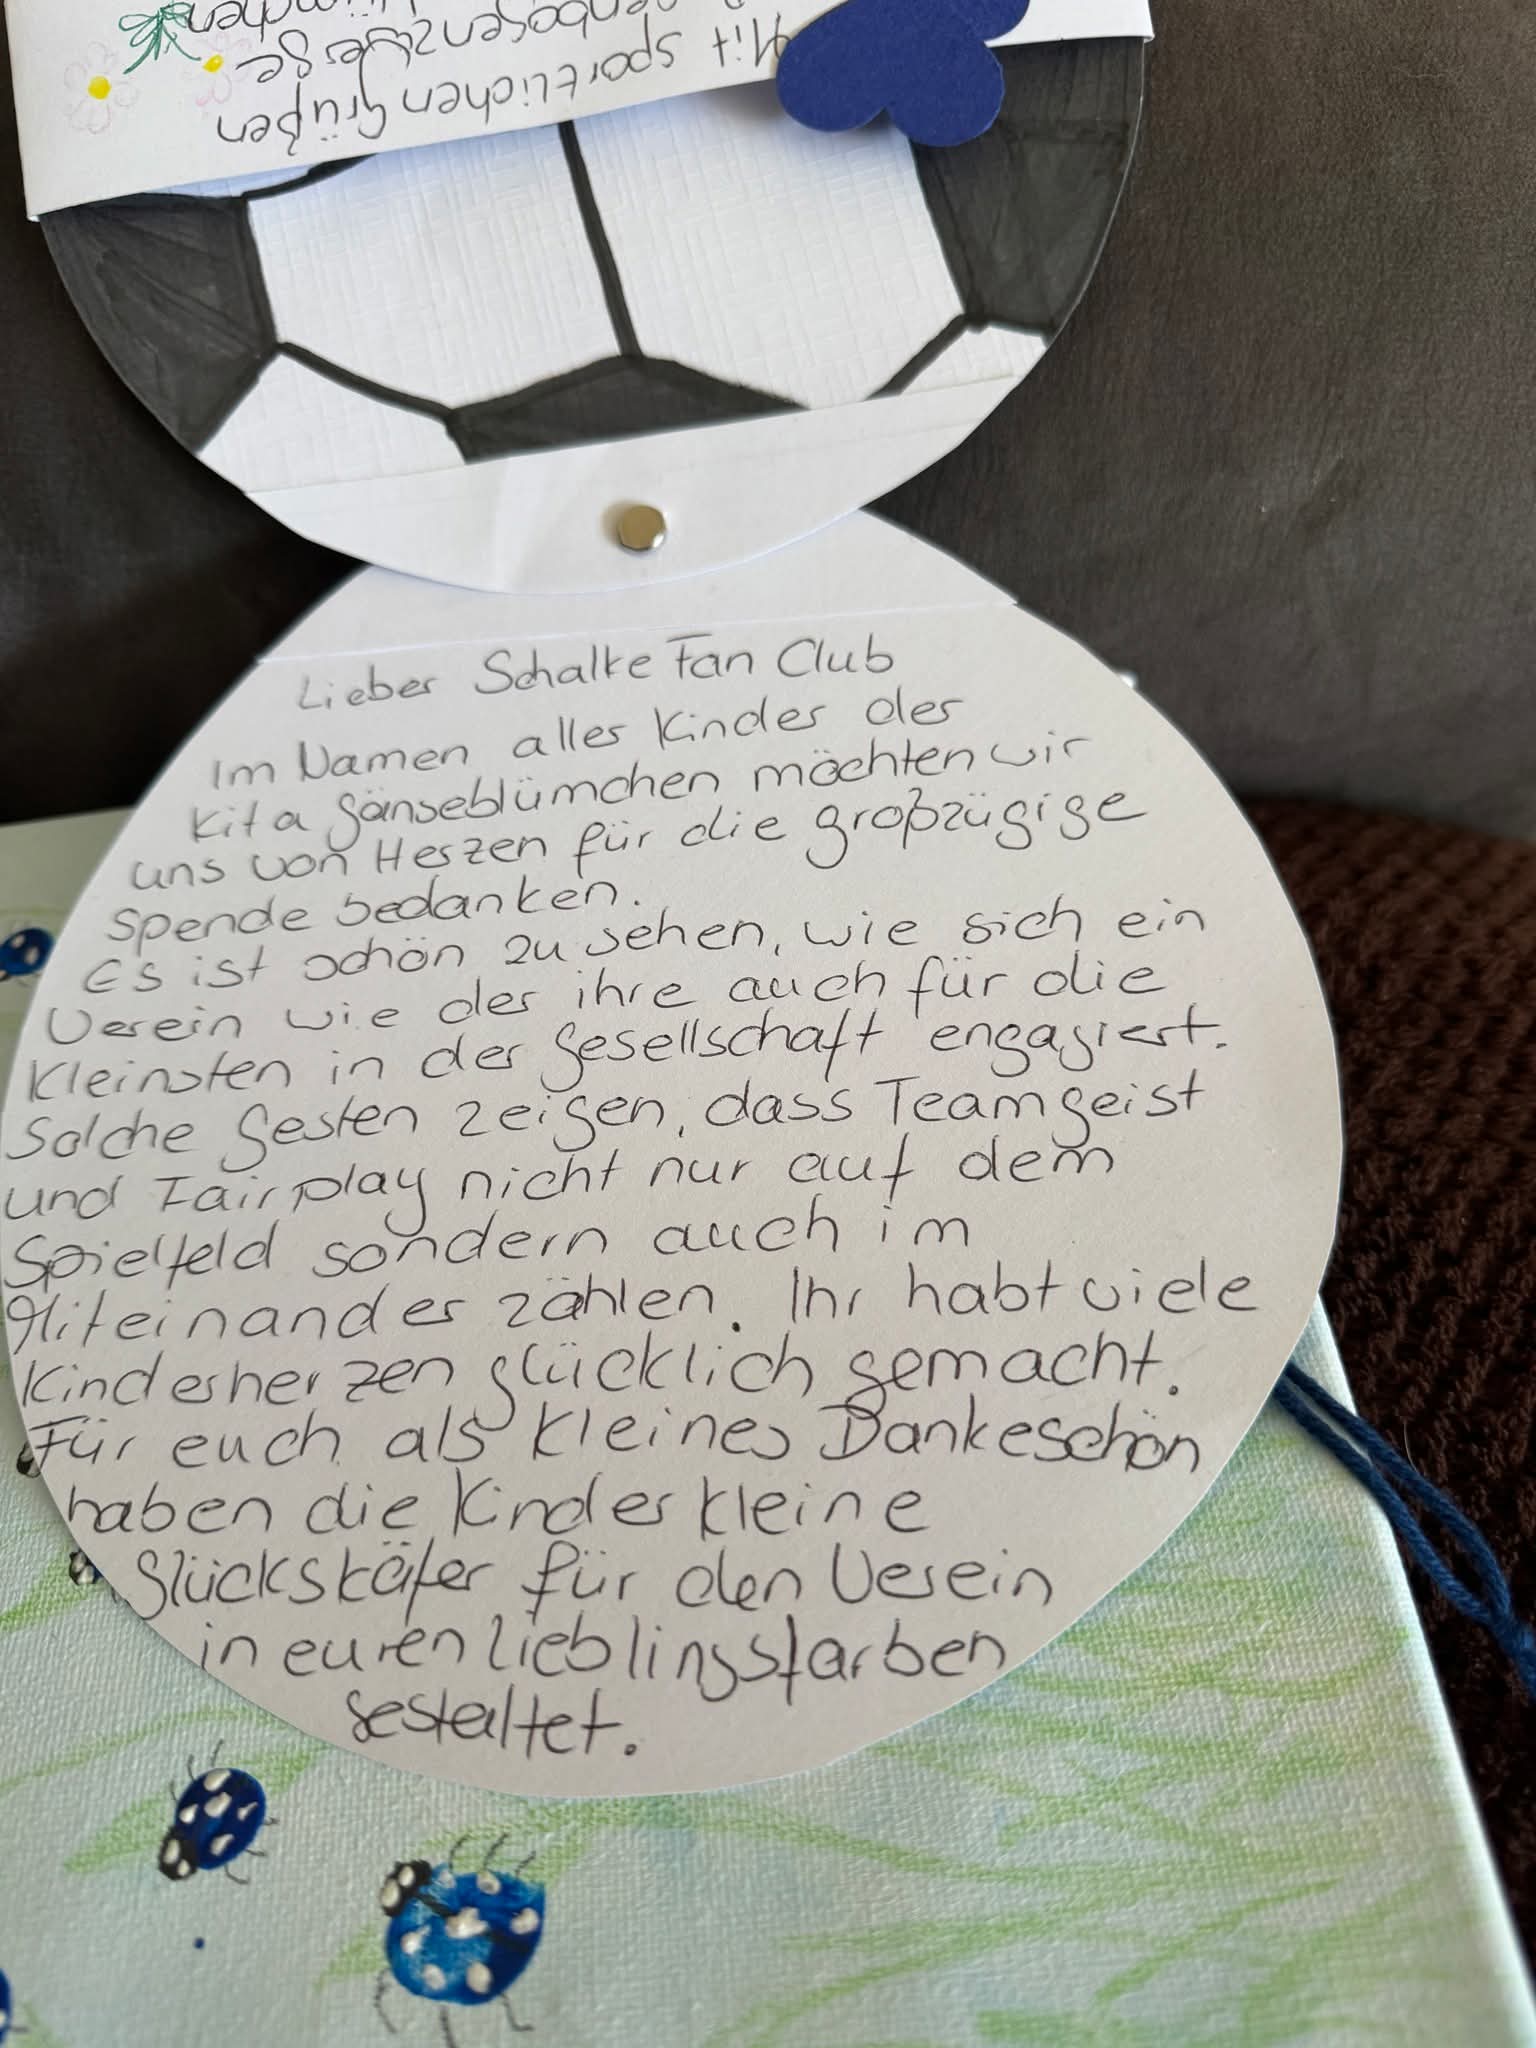 Mit sportlichen Grüßen
Lieber Schalke Fan Club
Im Namen aller Kinder der
Kita Gänseblümchen möchten wir
uns von Herzen für die großzügige
Spende bedanken.
Es ist schön zu sehen, wie sich ein
Verein wie der ihre auch für die
Kleinsten in der Gesellschaft engagiert.
Solche Gesten zeigen, dass Teamgeist
und Fairplay nicht nur auf dem
Spielfeld sondern auch im
Miteinander zählen. Ihr habt viele
Kinderherzen glücklich gemacht.
Für euch als kleines Dankeschön
haben die Kinder kleine
Glückskäfer für den Verein
in euren lieblingsfarben
gestaltet.